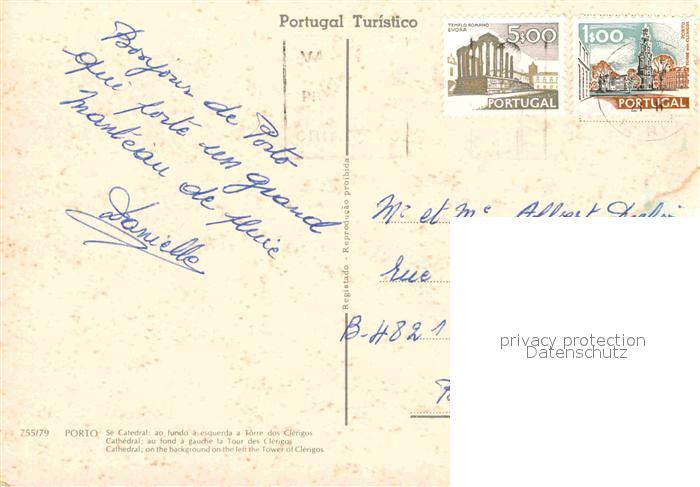 Portugal Turístico
Bonjour de Porto
qui porte un grand
manteau de pluie
Danielle
TEMPLO ROMANO
EVORA
5$00
PORTUGAL
1$00
PORTO
PORTUGAL
Registado - Reprodução proibida
Mr et Me Albert
Rue
B-4821
privacy protection
Datenschutz
255/79 PORTO Sé Catedral: ao fundo à esquerda a Tôrre dos Clérigos
Cathedral; au fond à gauche la Tour des Clérigos
Cathedral; on the background on the left the Tower of Clérigos